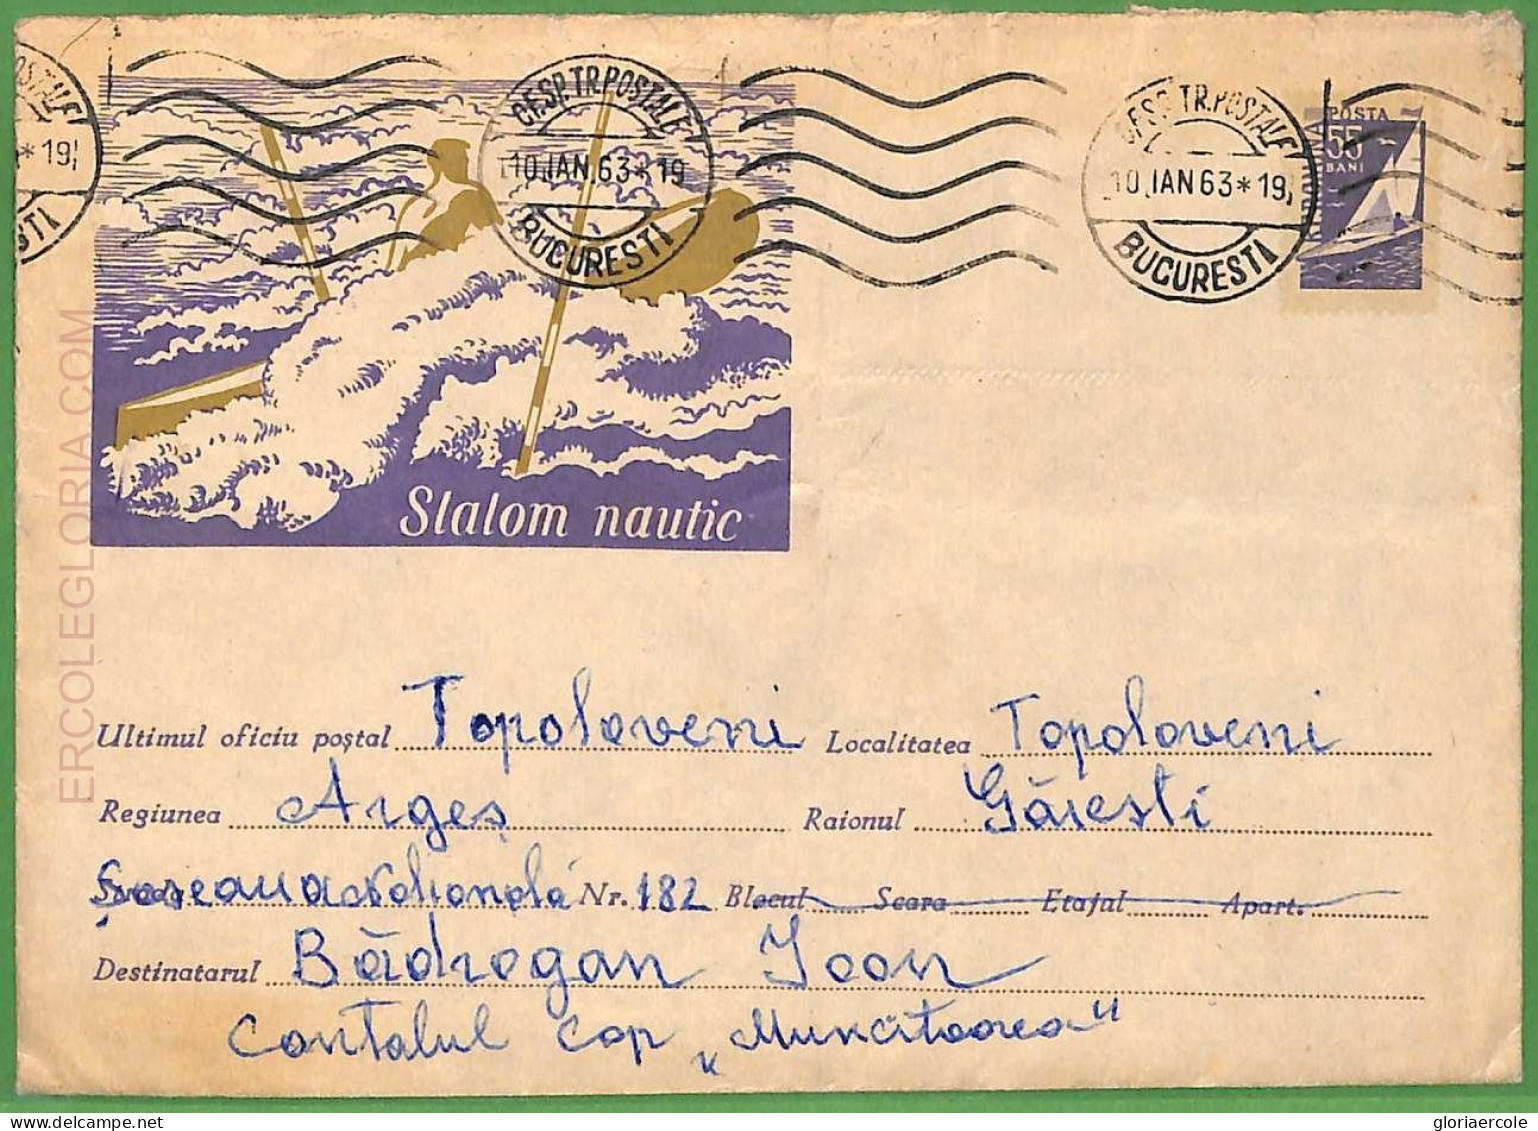 POSTALE
* 19
STI
CF.SP.TR.POSTALE
10.IAN.63*19
BUCURESTI
CF.SP.TR.POSTALE
10.IAN 63*19
BUCURESTI
POSTA
55
BANI
Slalom nautic
ERCOLEGLORIA.COM
Ultimul oficiu poștal Topoloveni Localitatea Topoloveni
Regiunea Argeș Raionul Găiești
Șoseaua Națională Nr. 182 Blocul Scara Etajul Apart.
Destinatarul Bădrogan Ioan
Contabil cop „Muncitoarea"
gloriaercole